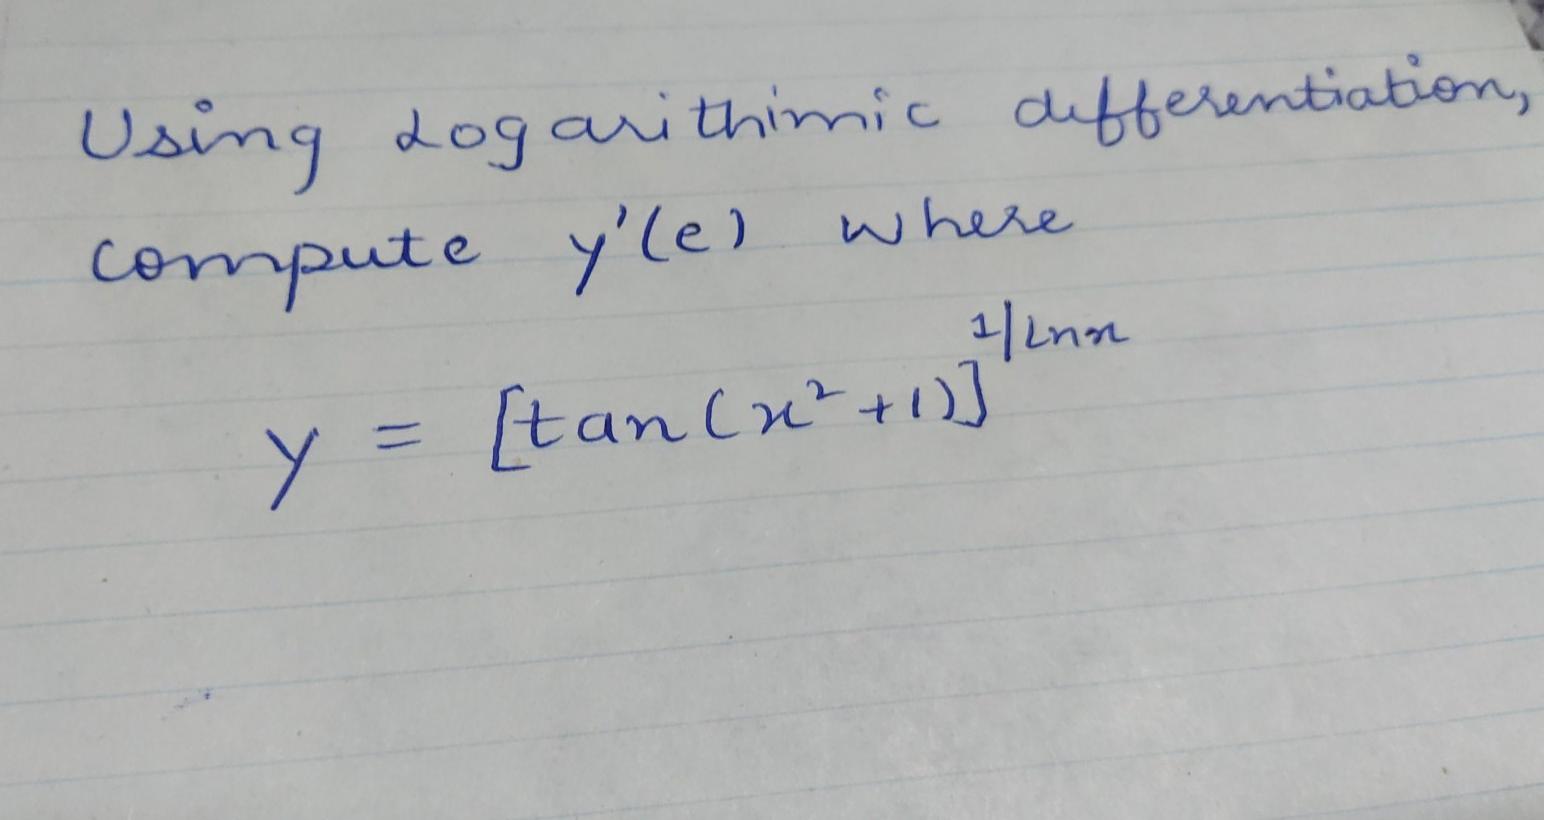 Using Logarithimic differentiation,
compute y'(e) where
y = [tan(x²+1)]^{1/Lnx}